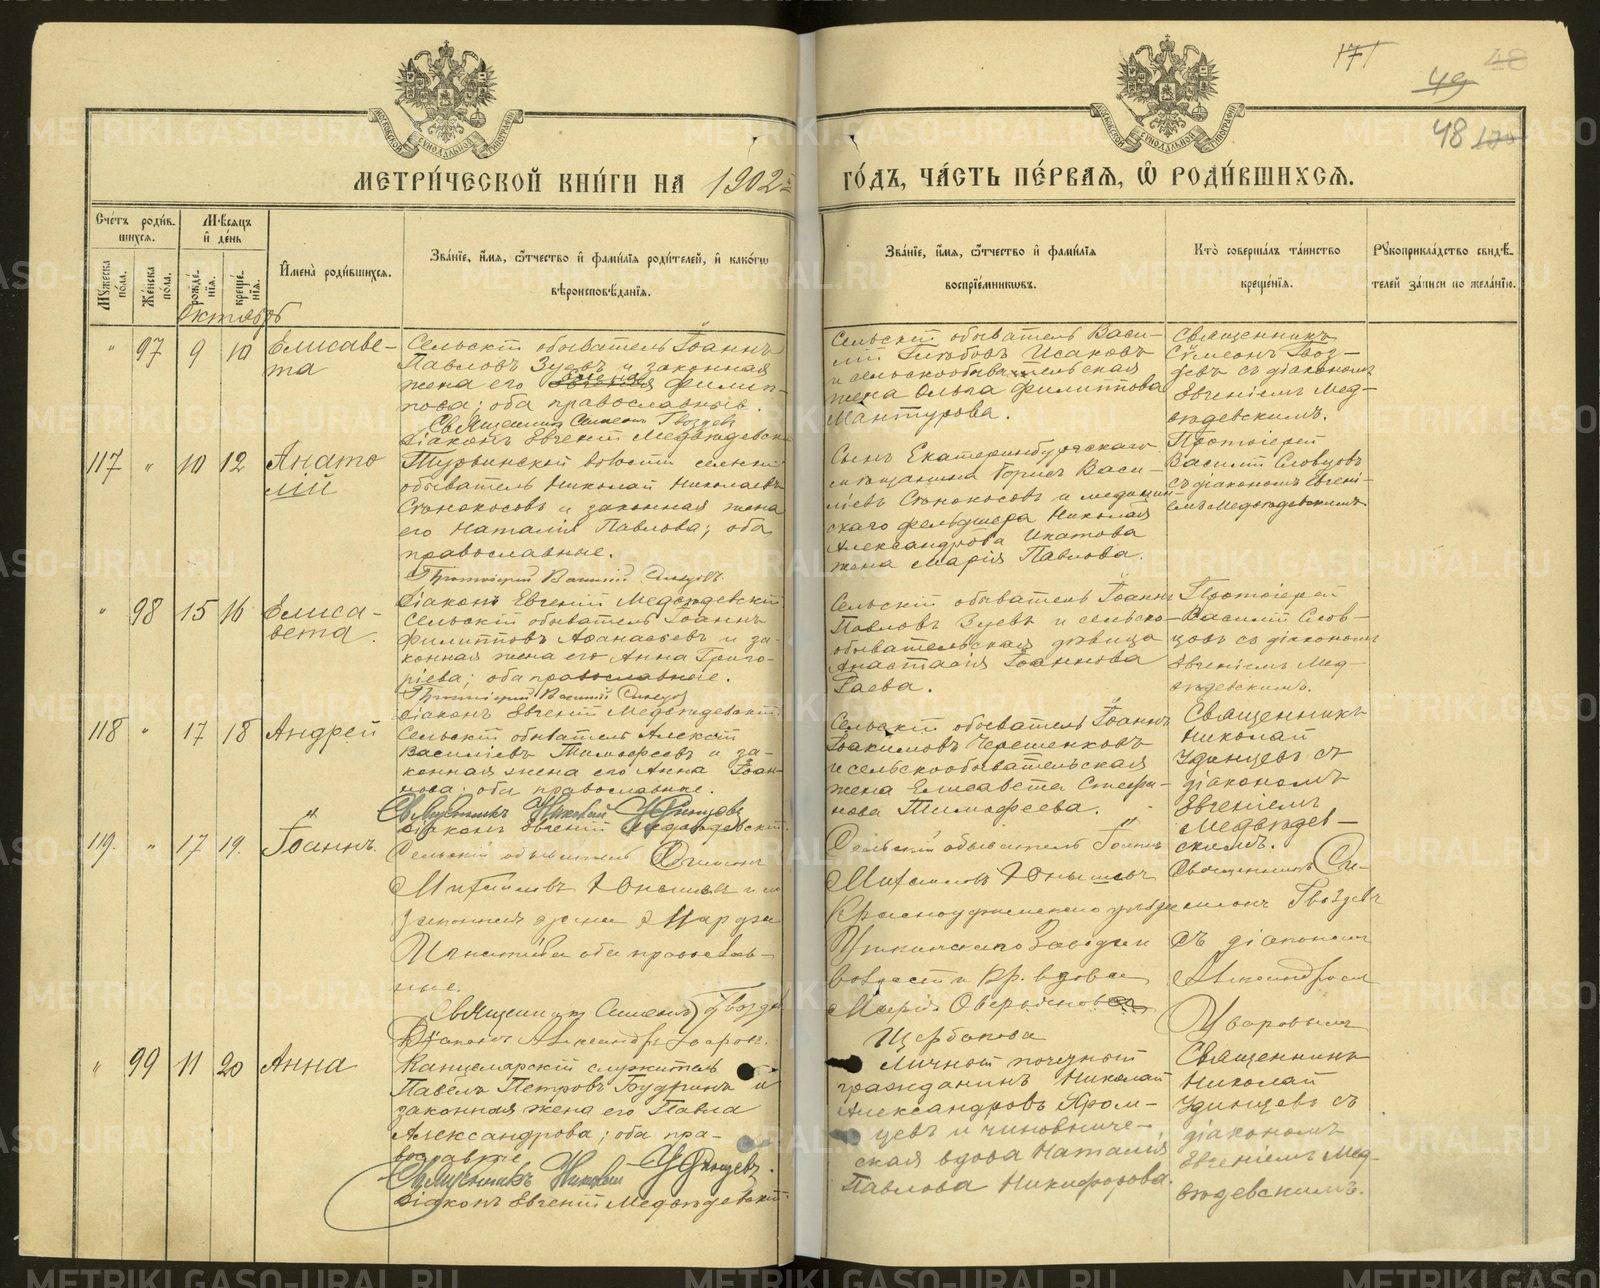 171
49
48
48 170
МОСКОВСКОЙ СѴНОДАЛЬНОЙ ТИПОГРАФІИ
МОСКОВСКОЙ СѴНОДАЛЬНОЙ ТИПОГРАФІИ
МЕТРИ́ЧЕСКОЙ КНИ́ГИ НА 1902
ГО́ДЪ, ЧА́СТЬ ПЕ́РВАЯ, Ѿ РОДИ́ВШИХСЯ.
Сче́тъ роди́в-
шихся.
Мѣ́сяцъ
и̂ де́нь
Му́жеска по́ла.
Же́нска по́ла.
рожде́нїя.
креще́нїя.
И҆мена̀ роди́вшихся.
Зва́нїе, и҆́мя, ѻ҆́тчество и҆ фами́лїя роди́телей, и҆ како́гѡ
вѣроисповѣ́данїя.
Зва́нїе, и҆́мя, ѻ҆́тчество и҆ фами́лїя
воспрїе́мниковъ.
Кто̀ соверша́лъ та́инство
креще́нїя.
Рꙋкоприкла́дство свидѣ́-
телей за́писи по жела́нїю.
Октябрь
" 97 9 10 Елисаве-
та
Сельскій обыватель Іоаннъ
Павловъ Зуевъ и законная
жена его Филип-
пова; оба православные.
Священникъ Симеонъ Гвоздевъ
Діаконъ Евгеній Медвѣдевскій
Сельскій обыватель Васи-
лій Глѣбовъ Исаковъ
и сельскообывательская
жена Ольга Филиппова
Мантурова.
Священникъ
Симеонъ Гвоз-
девъ съ діакономъ
Евгеніемъ Мед-
вѣдевскимъ.
117 " 10 12 Анато
лій
Турьинской волости сельскій
обыватель Николай Николаевъ
Стонокосовъ и законная жена
его Наталія Павлова; оба
православные.
Протоіерей Василій Словцовъ.
Діаконъ Евгеній Медвѣдевскій
Сынъ Екатеринбургскаго
мѣщанина Борисъ Васи-
ліевъ Стонокосовъ и медицин-
скаго фельдшера Николая
Александрова Ипатова
жена Марія Павлова.
Протоіерей
Василій Словцовъ
съ діакономъ Евгені-
емъ Медвѣдевскимъ
" 98 15 16 Елиса-
вета.
Сельскій обыватель Іоаннъ
Филипповъ Аѳанасьевъ и за-
конная жена его Анна Григо-
ріева; оба православные.
Протоіерей Василій Словцовъ
Діаконъ Евгеній Медвѣдевскій.
Сельскій обыватель Іоаннъ
Павловъ Зуевъ и сельско-
обывательская дѣвица
Анастасія Іоаннова
Гаева.
Протоіерей
Василій Слов-
цовъ съ діакономъ
Евгеніемъ Мед-
вѣдевскимъ.
118 " 17 18 Андрей
Сельскій обыватель Алексій
Василіевъ Тимоѳеевъ и за-
конная жена его Анна Іоан-
нова; оба православные.
Священникъ Николай Удинцевъ
Діаконъ Евгеній Медвѣдевскій.
Сельскій обыватель Іоаннъ
Іоакимовъ Черешенковъ
и сельскообывательская
жена Елисавета Стефа-
нова Тимофеева.
Священникъ
Николай
Удинцевъ съ
діакономъ
Евгеніемъ
Медвѣдев-
скимъ.
119. " 17 19. Іоаннъ.
Сельскій обыватель
Михаиловъ и
законная жена
оба православ-
ные.
Священникъ Симеонъ Гвоздевъ
Діаконъ Александръ Уваровъ.
Сельскій обыватель Іоаннъ
Михаиловъ
Красноуфимскаго уѣзда
Уткинскаго Завода
волости кр. вдова
Марія
Щербакова
Священникъ Си-
меонъ Гвоздевъ
съ діакономъ
Александромъ
Уваровымъ
" 99 11 20 Анна
Канцелярскій служитель
Павелъ Петровъ Будринъ и
законная жена его Павла
Александрова; оба пра-
вославные
Священникъ Николай Удинцевъ.
Діаконъ Евгеній Медвѣдевскій.
Личный почетный
гражданинъ Николай
Александровъ Яром-
цевъ и чиновниче-
ская вдова Наталія
Павлова Никифорова.
Священникъ
Николай
Удинцевъ съ
діакономъ
Евгеніемъ Мед-
вѣдевскимъ.
METRIKI.GASO-URAL.RU